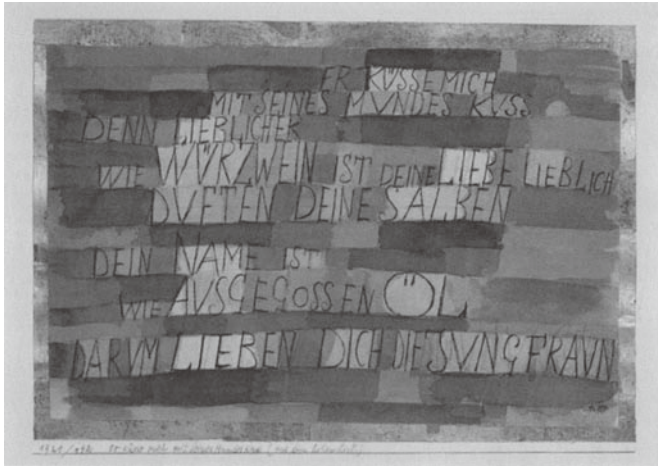 ER KÜSSE MICH
MIT SEINES MVNDES KVSS
DENN LIEBLICHER
WIE WÜRZWEIN IST DEINE LIEBE LIEBLICH
DVFTEN DEINE SALBEN
DEIN NAME IST
WIE AVSGEGOSSEN ÖL
DARVM LIEBEN DICH DIE JVNGFRAVN
1921/